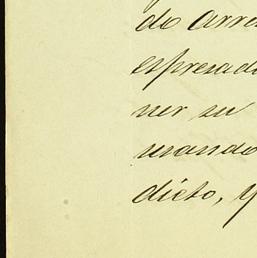 do arre
espresado
ner su
mando
dicto, y